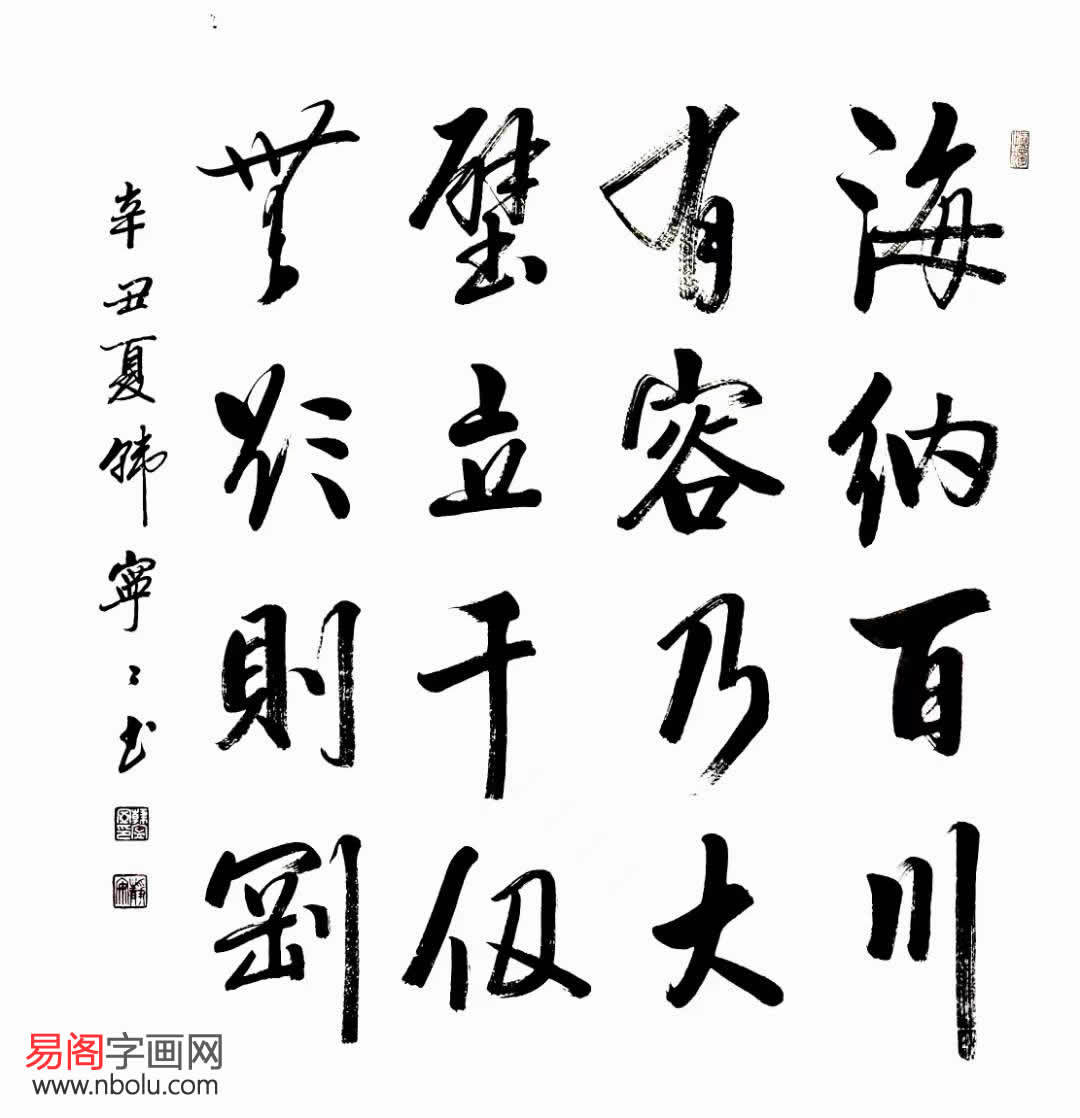 海纳百川
有容乃大
壁立千仞
無欲則剛
辛丑夏韩寧〻书
易阁字画网
www.nbolu.com